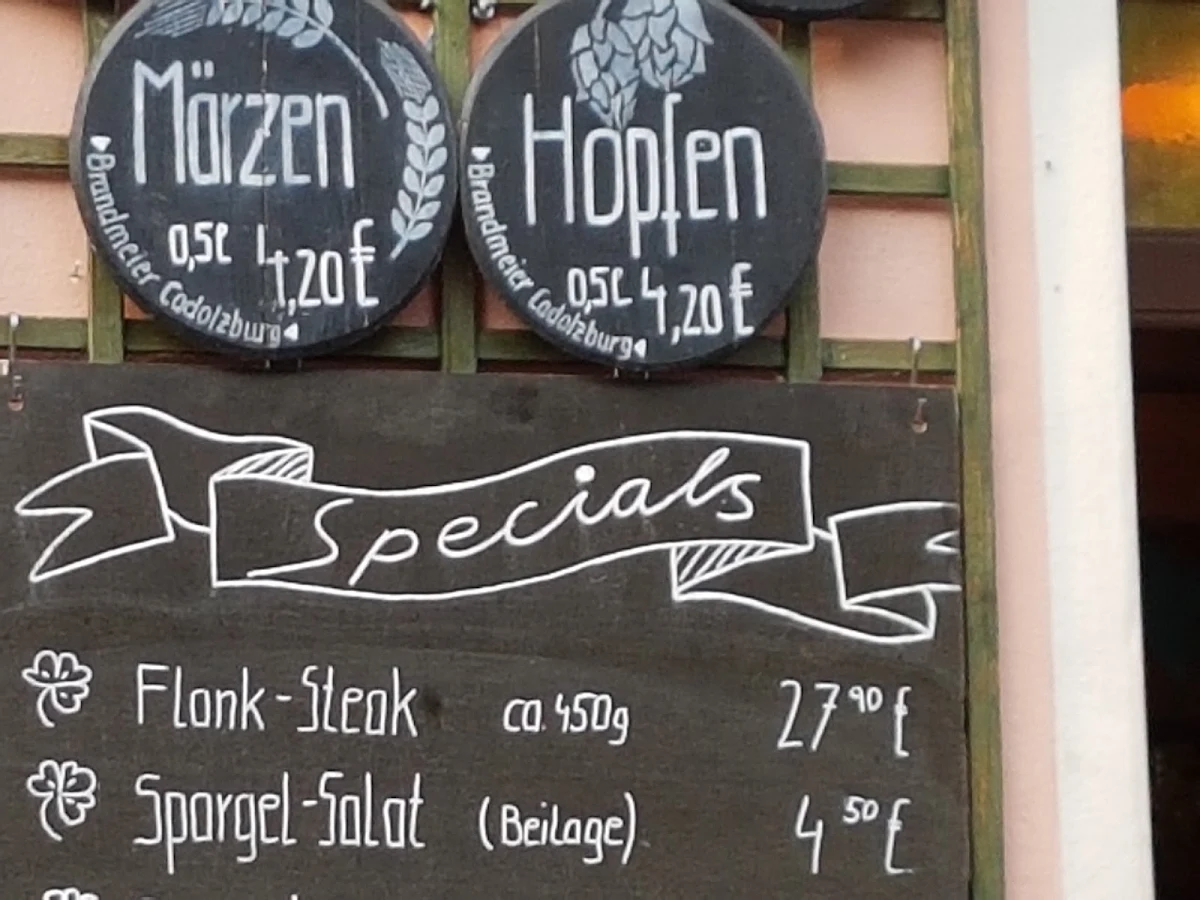 Märzen
0,5l 4,20€
Brandmeier Cadolzburg
Hopfen
0,5l 4,20€
Brandmeier Cadolzburg
Specials
Flank-Steak ca. 450g 27 90 €
Spargel-Salat (Beilage) 4 50 €